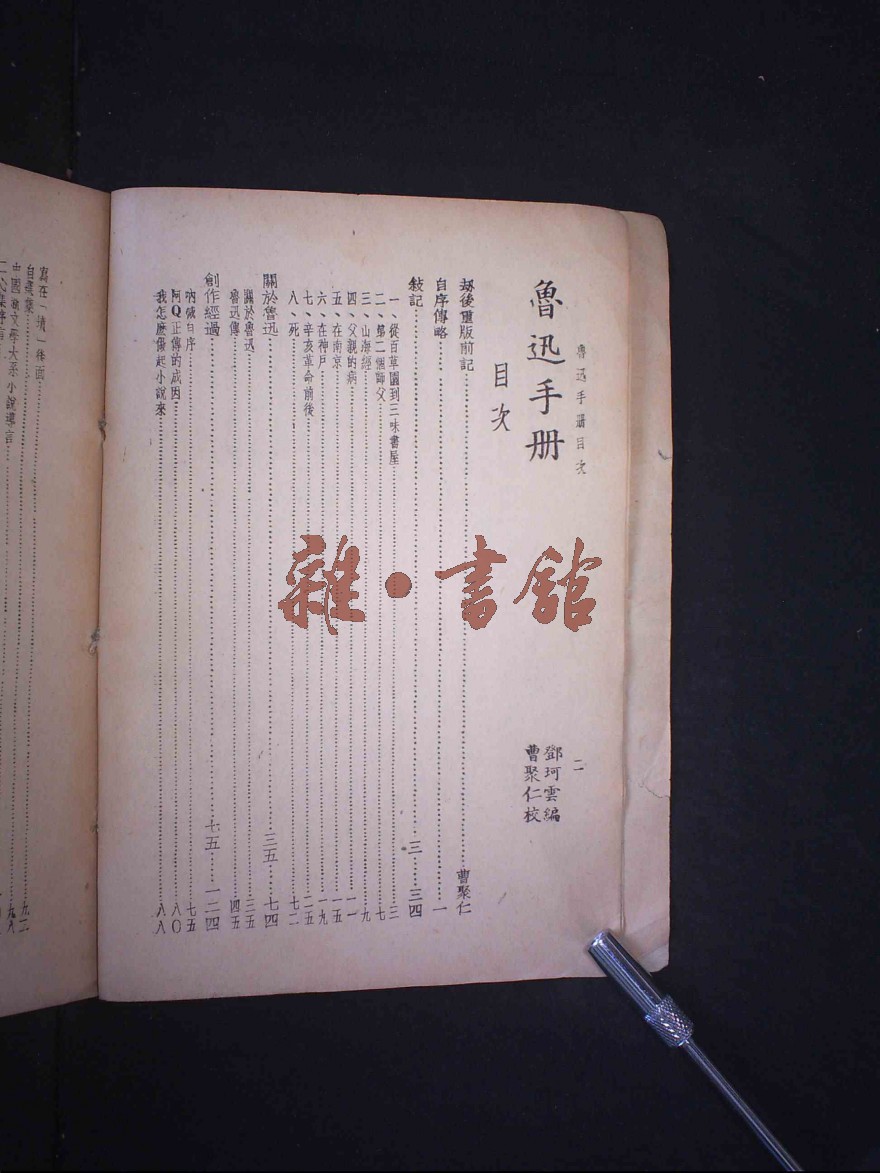 魯迅手册目次
二
魯迅手册
目次
鄧珂雲編
曹聚仁校
劫後重版前記 曹聚仁
自序傳略 一
敍記 三……三四
一、從百草園到三味書屋 三
二、第二個師父 七
三、山海經 九
四、父親的病 一一
五、在南京 一五
六、在神戶 一九
七、辛亥革命前後 二五
八、死 七二
關於魯迅 三五……七四
關於魯迅 三五
魯迅傳 四五
創作經過 七五……一二四
吶喊自序 七五
阿Q正傳的成因 八〇
我怎麽做起小說來 八八
寫在「墳」後面 九二
自選集 九八
中國新文學大系小說導言
二心集序言
雜·書館